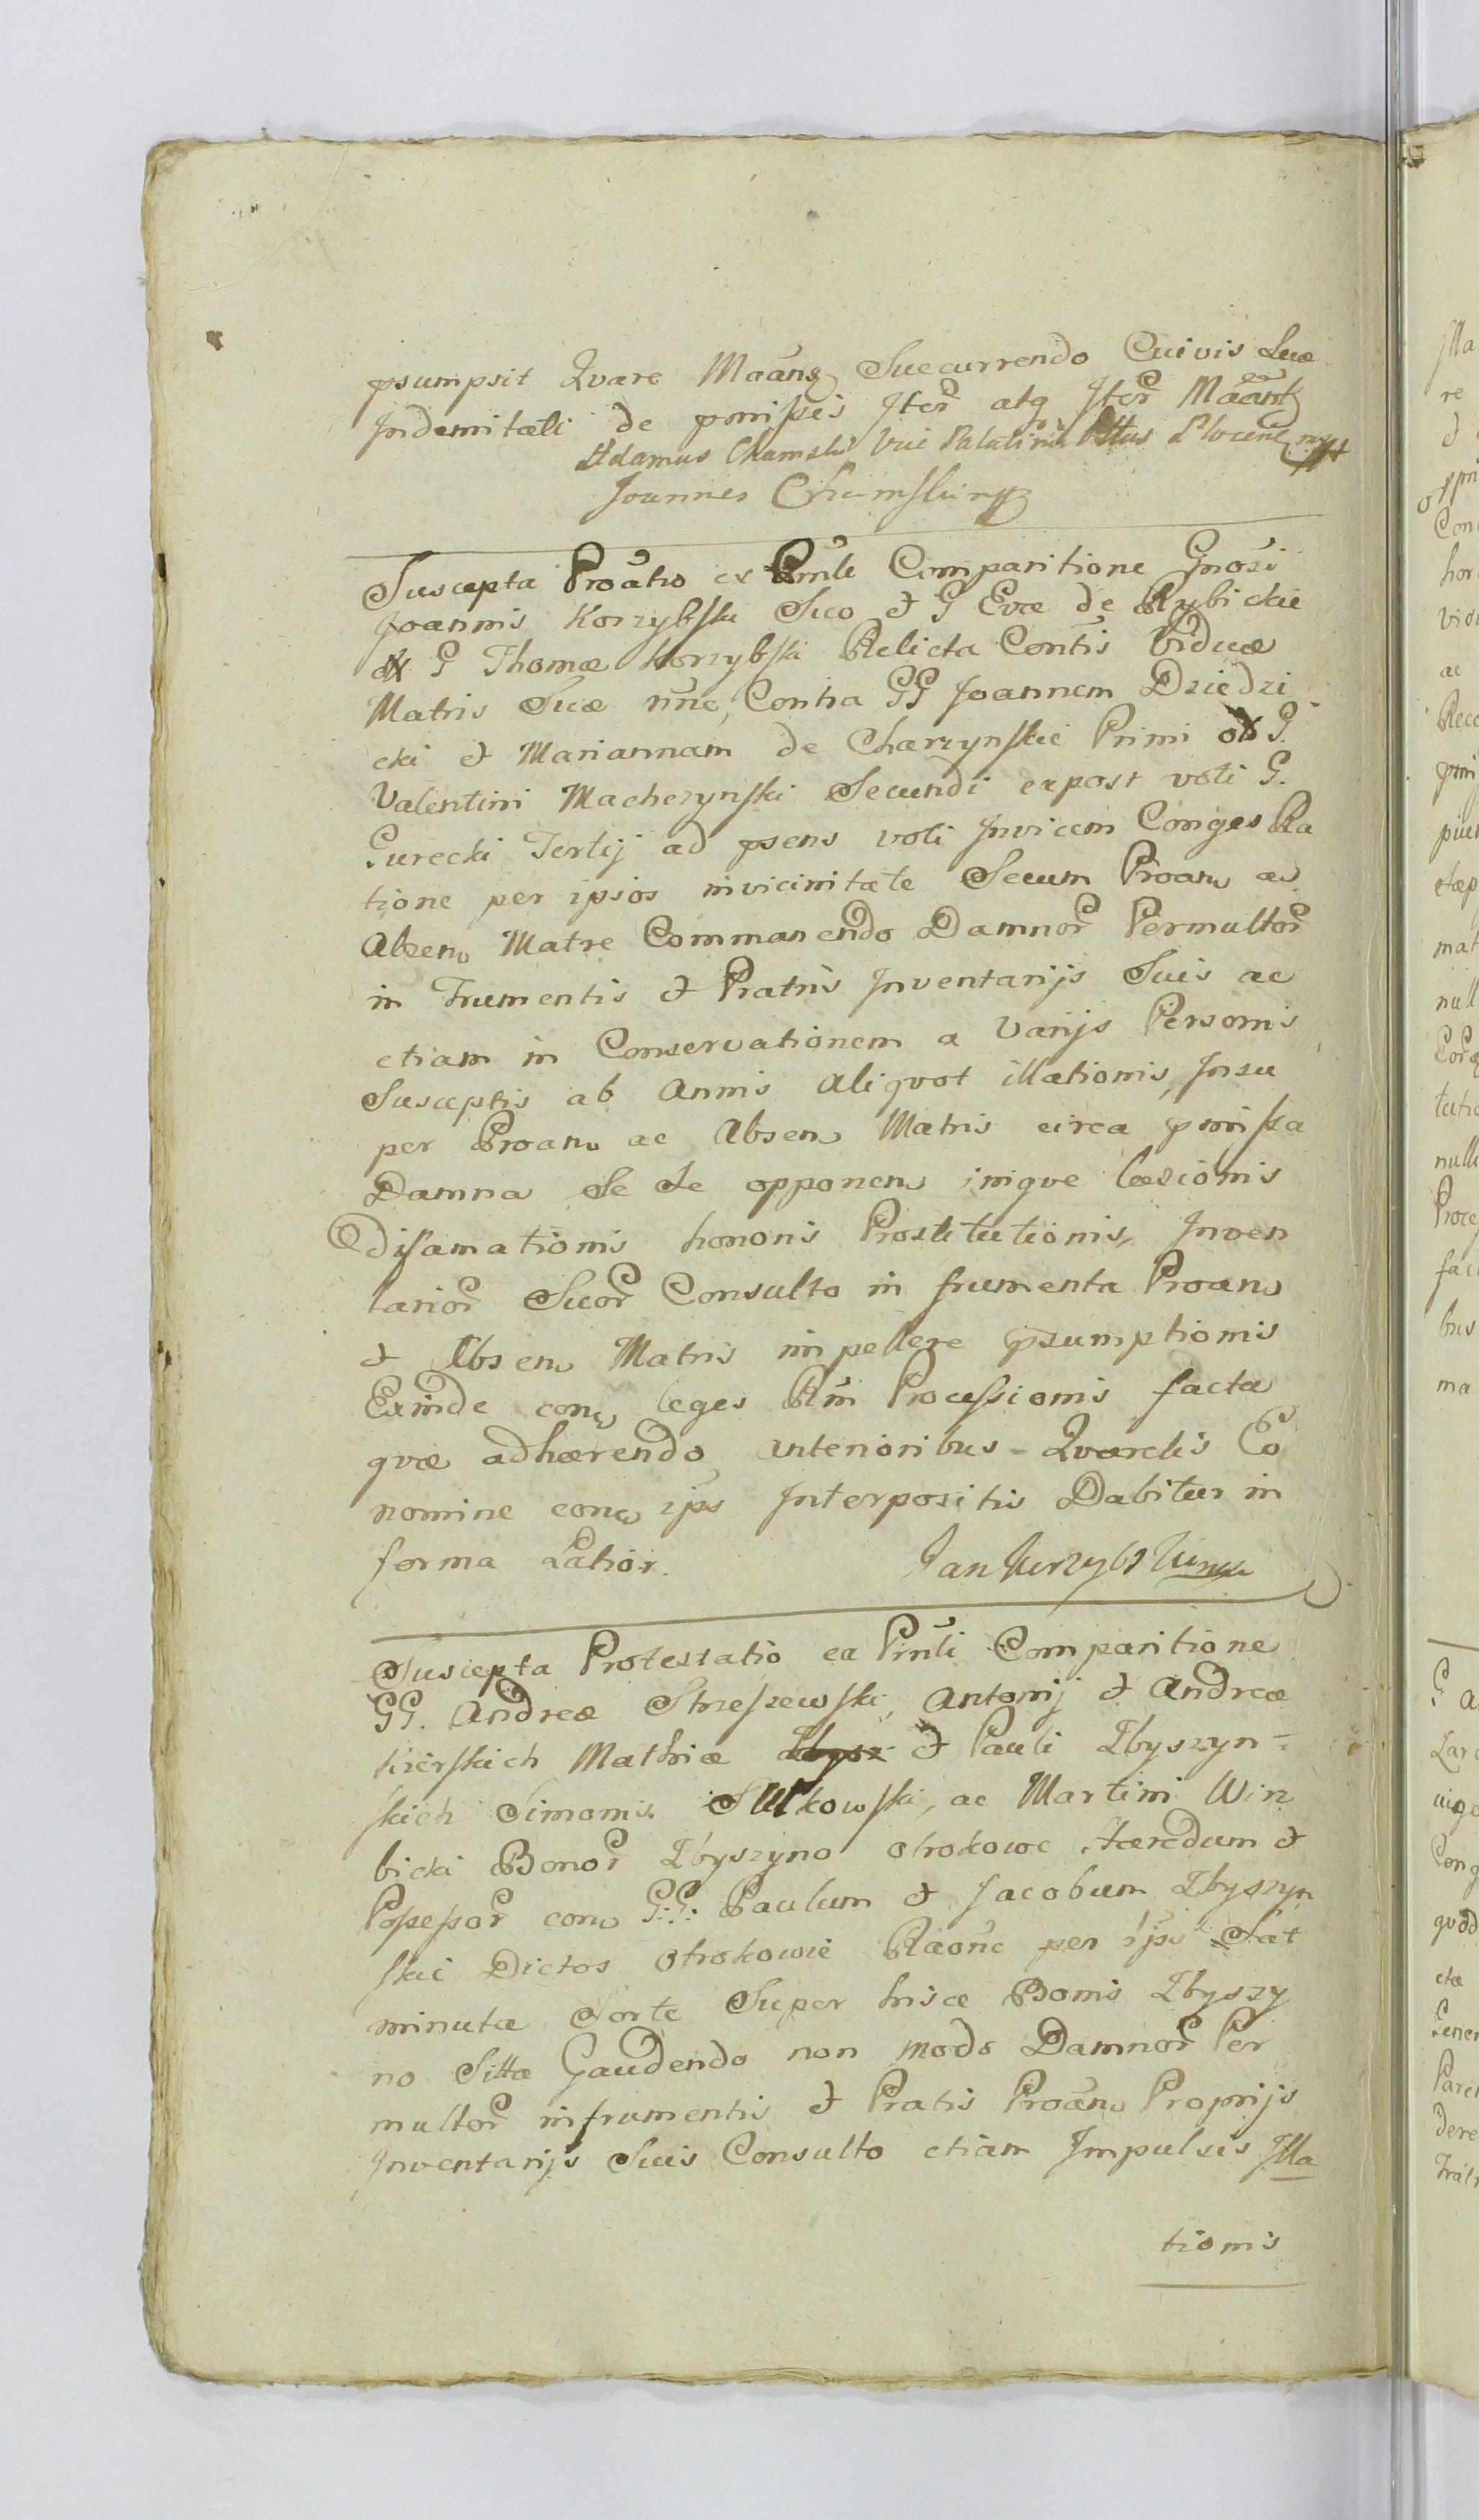 psumpsit Qvare Maansq Succurrendo Cuivis Suæ
Indemnitati de pmissis Iter atq Iter Maant
Adamus Chamski Vice Palatinus Plocen mpp
Joannes Chamski mpp
Suscepta Proatio ex Pnli Comparitione Gnosi
Joannis Korzybski Suo et G Evæ de Rybickie
G Thomæ Korzybski Relicta Contis Viduæ
Matris Suæ nne, Contra GG Joannem Dziedzi
cki et Mariannam de Charzynskie Primi G.
Valentini Machczynski Secundi expost voti G.
Gurecki Tertij ad psens voti Invicem Conges Ra
tione per ipsos invicinitate Secum Proan ac
Absen Matre Commanendo Damnor Permultor
in Frumentis et Pratis Inventarijs Suis ac
etiam in Conservationem a Varijs Personis
Susceptis ab Annis Aliqvot illationis, Insu
per Proan ac Absen Matris circa pmissa
Damna Se Se opponen iniqve læsionis
Difamationis honoris Prostitutionis, Inven
tarior Suor Consulto in frumenta Proan
et Absen Matris impellere psumptionis
Exinde con leges Rni Processionis facta
qvæ adhærendo anterioribus Qværelis Eo
nomine con ips Interpositis Dabitur in
forma Latior. Jan Korzybski mp
Suscepta Protestatio ex Pnli Comparitione
GG. Andreæ Strzeszewski, Antonij et Andreæ
Kierskich Mathiæ et Pauli Zbyszyn-
skich Simonis Sulkowski, ac Martini Win
bicki Bonor Zbyszyno otrokowe Hæredum et
Possessor con G:G: Paulum et Jacobum Zbyszyn
skie Dictos Otrokowie Raone per ips Sat
minuta Sorte Super hisce Bonis Zbyszy
no Sitta Gaudendo non modo Damnor Per
multor in frumentis et Pratis Proan Proprijs
Inventarijs Suis Consulto etiam Impulsis Illa
tionis